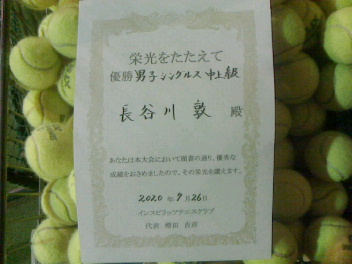 栄光をたたえて
優勝男子シングルス中上級
長谷川 敦 殿
あなたは本大会において頭書の通り、優秀な
成績をおさめましたので、その栄光を讃えます。
2020年7月26日
インスピリッツテニスクラブ
代表 増田 吉彦